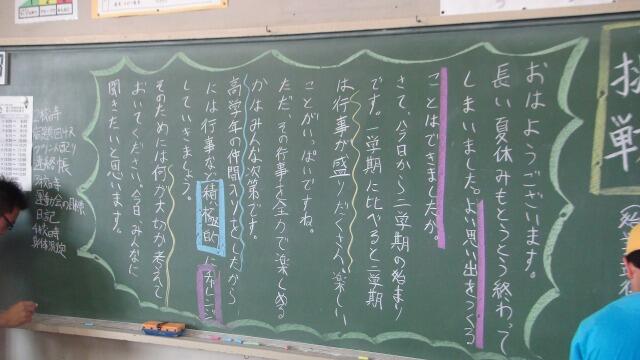 挑戦
おはようございます。
長い夏休みもとうとう終わって
しまいました。よい思い出をつくる
ことはできましたか。
さて、今日から二学期の始まり
です。一学期に比べると二学期
は行事が盛りだくさん。楽しい
ことがいっぱいですね。
ただ、その行事を全力で楽しめる
かはみんな次第です。
高学年の仲間入りをしたから
には行事など積極的にチャレンジ
していきましょう。
そのためには何が大切か考えて
おいてください。今日みんなに
聞きたいと思います。
プリント配り
連絡帳
日記
身体測定